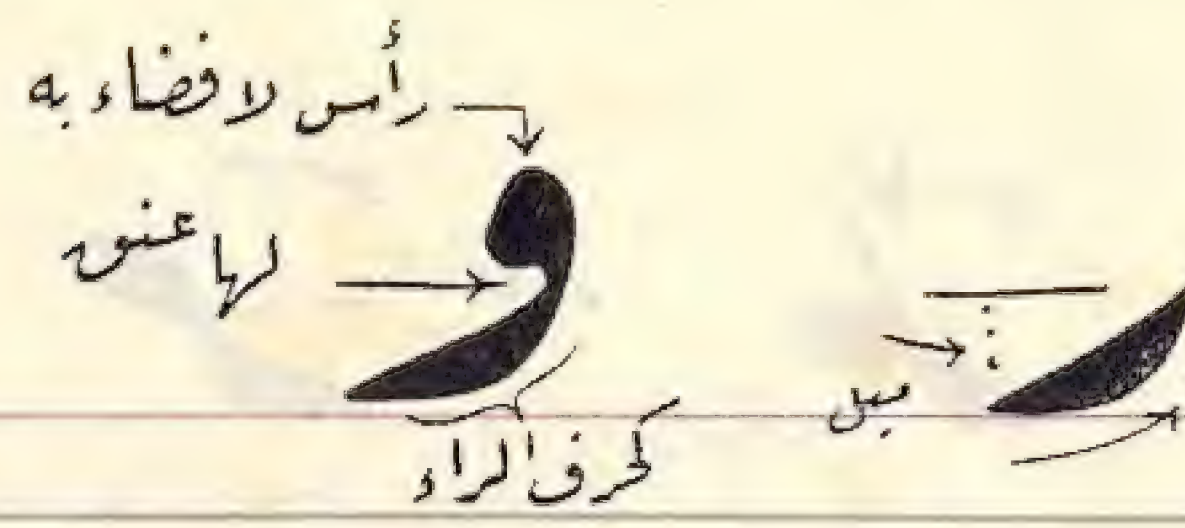 رأس لا فضاء به
لها عنق
و
كحرف الراء
ميل